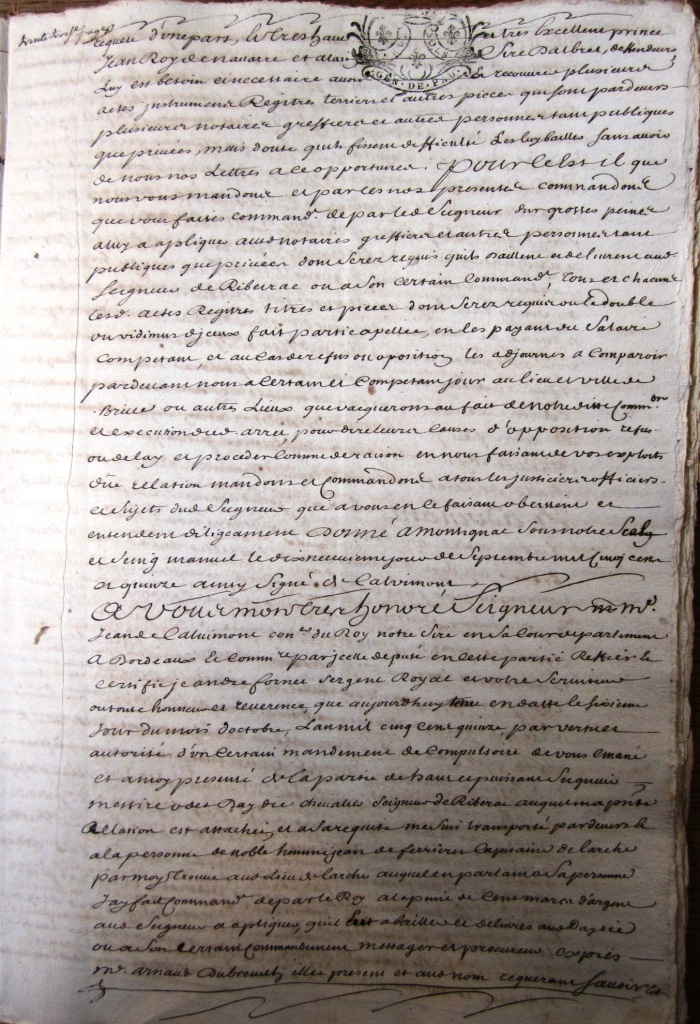 requete d'une part, le tres haut et tres Excellent prince
Jean Roy de navarre et alain Sire Dalbret, defendeurs
GEN · DE · PAU
Luy est besoin et necessaire avoir & recouvrer plusieurs
actes instrumens Registres terriers et autres pieces qui sont pardevers
plusieurs notaires greffiers et autres personnes tant publiques
que privées, mais doute quils fissent difficulté Les luy bailler sans avoir
de nous nos Lettres a ce opportunes. Pour ce Est il que
nous vous mandons et par ces nos presentes commandons
que vous faites command. de par le d Seigneur sur grosses peines
a luy a apliquer aux notaires greffiers et autres personnes tant
publiques que privées dont serez requis quils baillent et delivrent aud
Seigneur de Riberac ou a Son Certain Command, tous et chacuns
lesd. actes Registres titres et pieces dont serez requis ou le double
ou vidimus d'jceux fait partie apellée, en les payant du Salaire
Competant, et au Cas de refus ou oposition les adjournes a Comparoir
pardevant nous a Certain et Competant jour au lieu et ville de
Brive ou autres Lieux que vacquerons au fait de notre ditte Comm.on
et execution dud arret, pour dire leurs Causes d'opposition refus
ou delay et proceder Comme de raison en nous faisant de vos exploits
due relation mandons et Commandons a tous les justiciers officiers
et Sujets dud Seigneur que a vous en ce faisant obeissent et
entendent diligeament Donné a Montignac Sous notre Scel
et Seing manuel le dixneuvieme jour de Septembre mil Cinq cens
et quinze ainsy Signé de Calvimont
A Vous mon tres honoré Seigneur M.
Jean de Calvimont con.er du Roy notre Sire en Sa Cour de parlement
A Bordeaux et Comm.re par jcelle deputé en cette partie
Certifie je andre fornes Sergent Royal et votre Serviteur
en toute honneur et reverence, que aujourdhuy en datte le sixieme
Jour du mois doctobre, Lan mil cinq cens quinze, par vertu et
autorité d'un Certain mandement de Compulsoire de vous Emané
et a moy presenté de la partie de haut et puissant Seigneur
messire odet Daydie chevalier Seigneur de Riberac auquel ma pnte
Relation est attachée, et a Sa requete me suis transporté pardevers &
a la personne de noble homme jean de ferrieres Capitaine de larche
par moy trouvé aud Lieu de larche auquel en parlant a Sa personne
Jay fait Command. de par le Roy a la peine de Cent marcs d'argent
aud Seigneur a apliquer, quil a bailler et delivrer aud Daydie
ou a Son Certain Commandement messager et procureur exprés
M. arnaud Dubreuil illec present et aud nom requerant Savoir Est